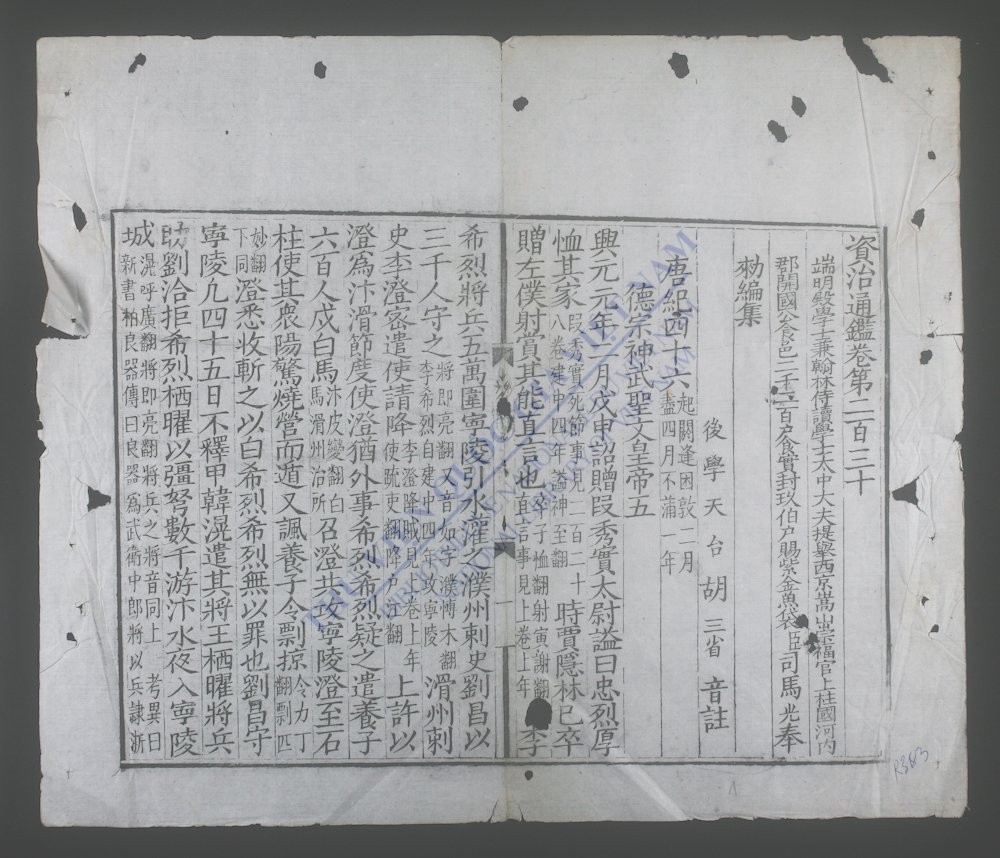 資治通鑑卷第二百三十
端明殿學士兼翰林侍讀學士太中大夫提舉西京嵩山崇福宮上柱國河內
郡開國公食邑二千二百戶食實封玖伯戶賜紫金魚袋臣司馬光奉
勑編集
後學天台胡三省音註
唐紀四十六起閼逢困敦二月盡四月不滿一年
德宗神武聖文皇帝五
興元元年二月戊申詔贈段秀實太尉諡曰忠烈厚
恤其家段秀實死節事見二百二十八卷建中四年諡神至翻時賈隱林已卒
贈左僕射賞其能直言也卒子恤翻射寅謝翻直言事見上卷上年李
希烈將兵五萬圍寧陵引水灌之濮州刺史劉昌以
三千人守之將即亮翻又音如字濮博木翻李希烈自建中四年攻寧陵滑州刺
史李澄密遣使請降李澄降賊見上卷上年使疏吏翻降戶江翻上許以
澄爲汴滑節度使澄猶外事希烈希烈疑之遣養子
六百人戍白馬汴皮變翻白馬滑州治所召澄共攻寧陵澄至石
柱使其衆陽驚燒營而遁又諷養子令剽掠令力丁翻剽匹
妙翻下同澄悉收斬之以白希烈希烈無以罪也劉昌守
寧陵凡四十五日不釋甲韓滉遣其將王栖曜將兵
助劉洽拒希烈栖曜以彊弩數千游汴水夜入寧陵
城滉呼廣翻將即亮翻將兵之將音同上考異曰新書柏良器傳曰良器爲武衛中郎將以兵隸浙
R.363